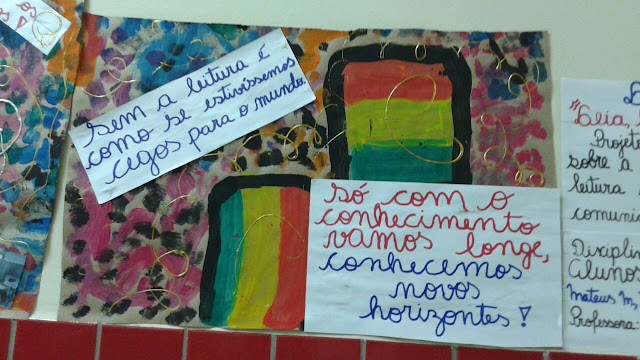 Sem a leitura é
como se estivéssemos
cegos para o mundo.
só com o
conhecimento
vamos longe,
conhecemos
novos
horizontes!
"Leia,
Projeto
sobre a
leitura
comuni
Disciplin
Alunos
Mateus M,
Professora